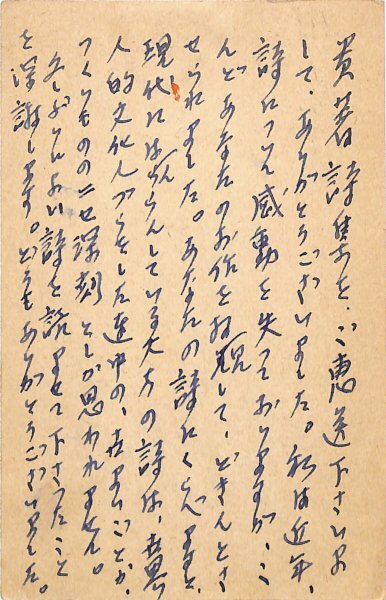 貴著詩集を、ご恵送下さいま
して、ありがとうございました。私は近年、
詩について感動を失っておりますが、こ
んどあなたのお作を拝見して、どきんとさ
せられました。あなたの詩にくらべますと、
現代にはんらんしている大方の詩は、
人的文化人づらをした連中の、ごとか、
つくりものの二セ深刻としか思われません。
久しぶりによい詩を読ませて下さったこと
を深謝します。どうもありがとうございました。